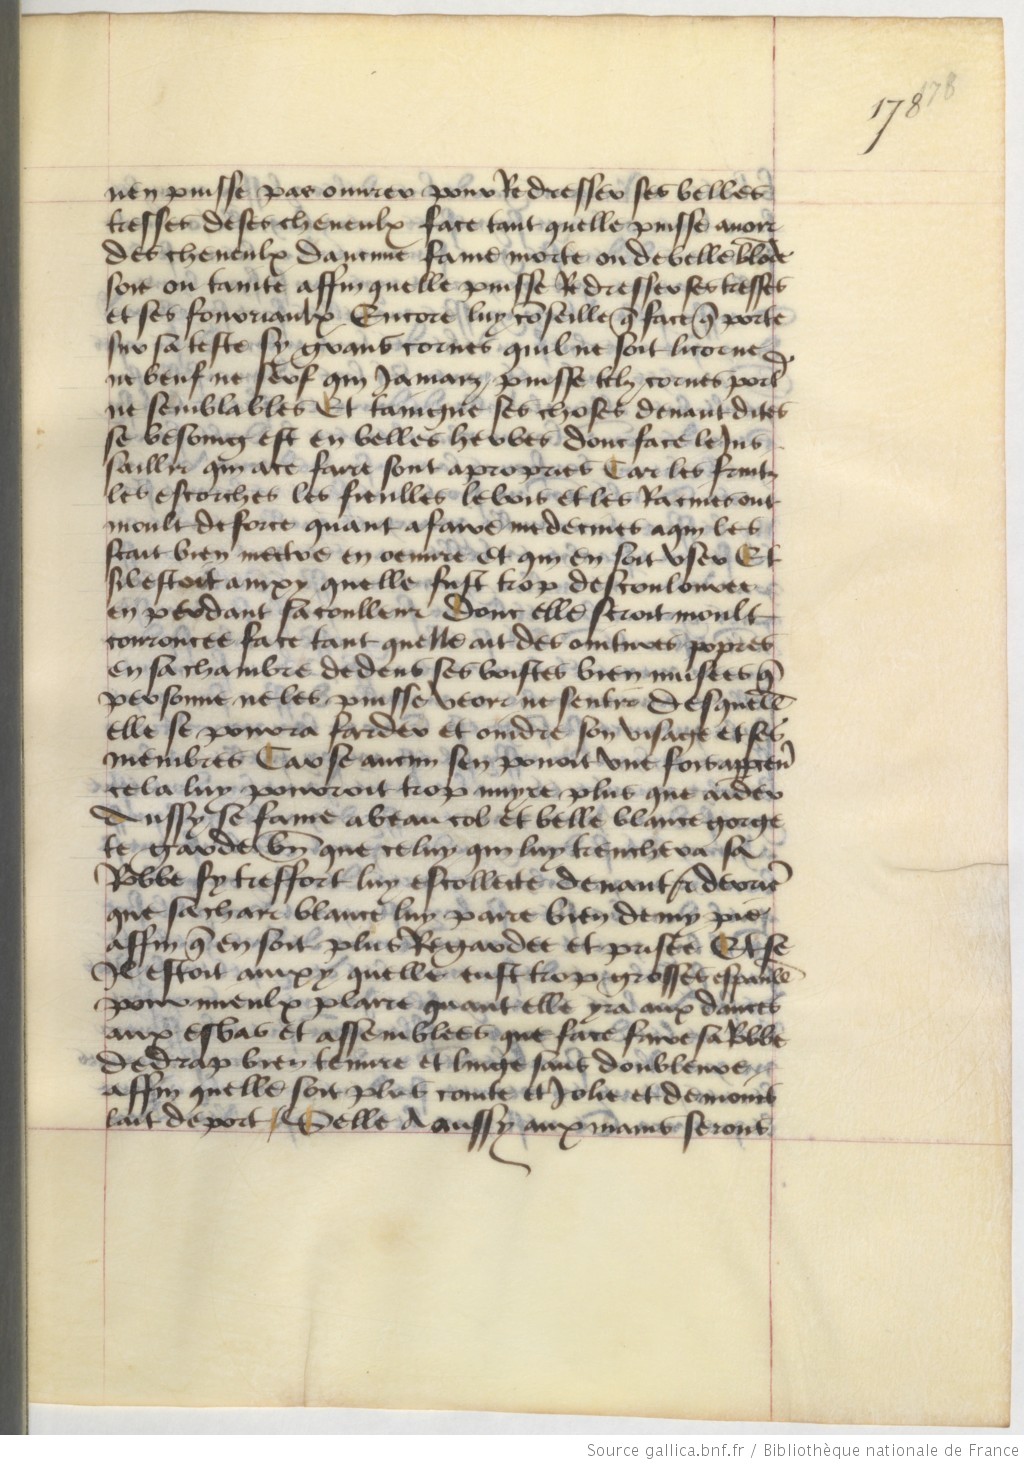 178 178
nen puisse pas ouvrer pour Redresser ses belles
tresses de ses cheveulx face tant quelle puisse avoir
des cheveulx daucune fame morte ou de belle blōde
soie ou tainte affin quelle puisse Redresser ses tresses
et ses fourriaulx Encore luy cōseille q̄ face q̄ porte
sur sa teste sy grans cornes quil ne soit licorne
ne beuf ne serf qui Jamaiz puisse telz cornes port
ne semblables Et
ses choses devant dites
se besoing est en belles herbes donc face le Jus
saillir qui a ce faire sont apropries Car les fruitz
les escorches les fieulles le bois et les Racines ont
moult de force quant a faire medecines a qui les
scait bien mectre en oeuvre et qui en soit user Et
sil estoit ainxy quelle fust trop descoulouree
en perdant sa coulleur donc elle seroit moult
couroncee face tant quelle ait des ointures
en sa chambre dedens ses boistes bien musees q̄
personne ne les puisse veoir ne sentir desquell
elle se pourra farder et oindre son visage et ses
membres Car se aucun sen
une fois
cela luy pourroit trop nuyre plus que aider
Aussy se fame a beau col et belle blance gorge
te garde bn̄ que celuy qui luy trenchera sa
Robbe sy tresfort luy escollecte devant
que sa chair blance luy paire bien demy pie
affin q̄ en soit plus Regardee et prisee Et se
Il estoit ainxy quelle eust trop grosses espaull
pour mieulx plaire quant elle yra aux dances
aux esbas et assemblees que face faire sa Robbe
de drap bien tenure et linge sans doubleure
affin quelle soit plus cointe et Jolie et de moins
lait deport Selle A aussy aux mains serons
Source gallica.bnf.fr / Bibliothèque nationale de France